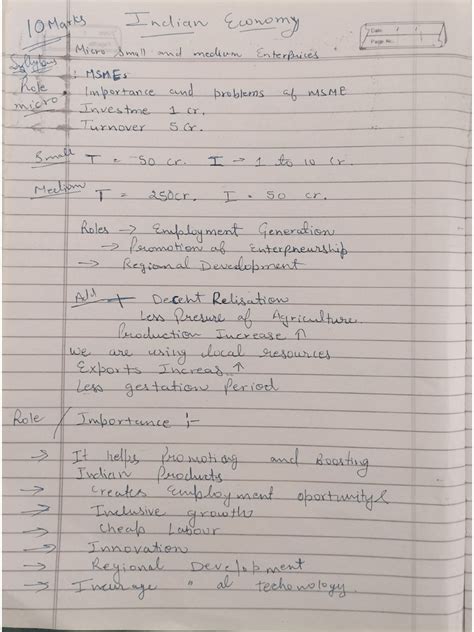 10 Marks
Indian Economy
Date / /
Page No.
Micro Small and medium Enterprices.
Syllabus
: MSMEs
Role
Importance and problems of MSME
micro
Investme 1 cr.
Turnover 5 cr.
Small T = 50 cr. I → 1 to 10 cr.
Medium T = 250cr. I = 50 cr.
Roles → Employment Generation
→ Promotion of Enterpneurship
→ Regional Development
Add + Decent Relisation
Less Presure of Agriculture
Production Increase ↑
we are using local resources
Exports Increas.. ↑
Less gestation Period
Role / Importance :-
→ It helps promoting and Boosting
Indian Products
→ Creates Employment oportunity &
→ Inclusive growth
→ Cheap Labour
→ Innovation
→ Regional Development
→ Incurage " al techonology.